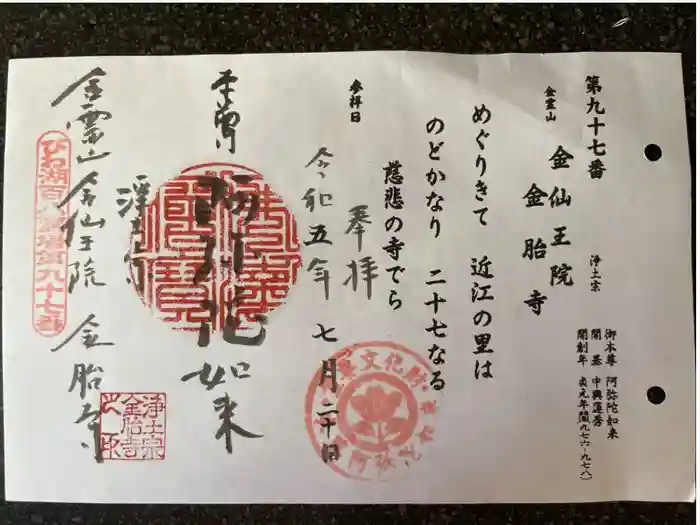 第九十七番
金霊山 金仙王院
金胎寺
浄土宗
御本尊 阿弥陀如来
開基 中興蓮秀
開創年 貞元年間九七六~九七八
めぐりきて 近江の里は
のどかなり 二十七なる
慈悲の寺でら
参拝日
奉拝
令和五年 七月二十日
本尊 阿弥陀如来
浄土宗
金霊山 金仙王院 金胎寺
びわ湖百八霊場第九十七番
浄土宗
金胎寺
之印